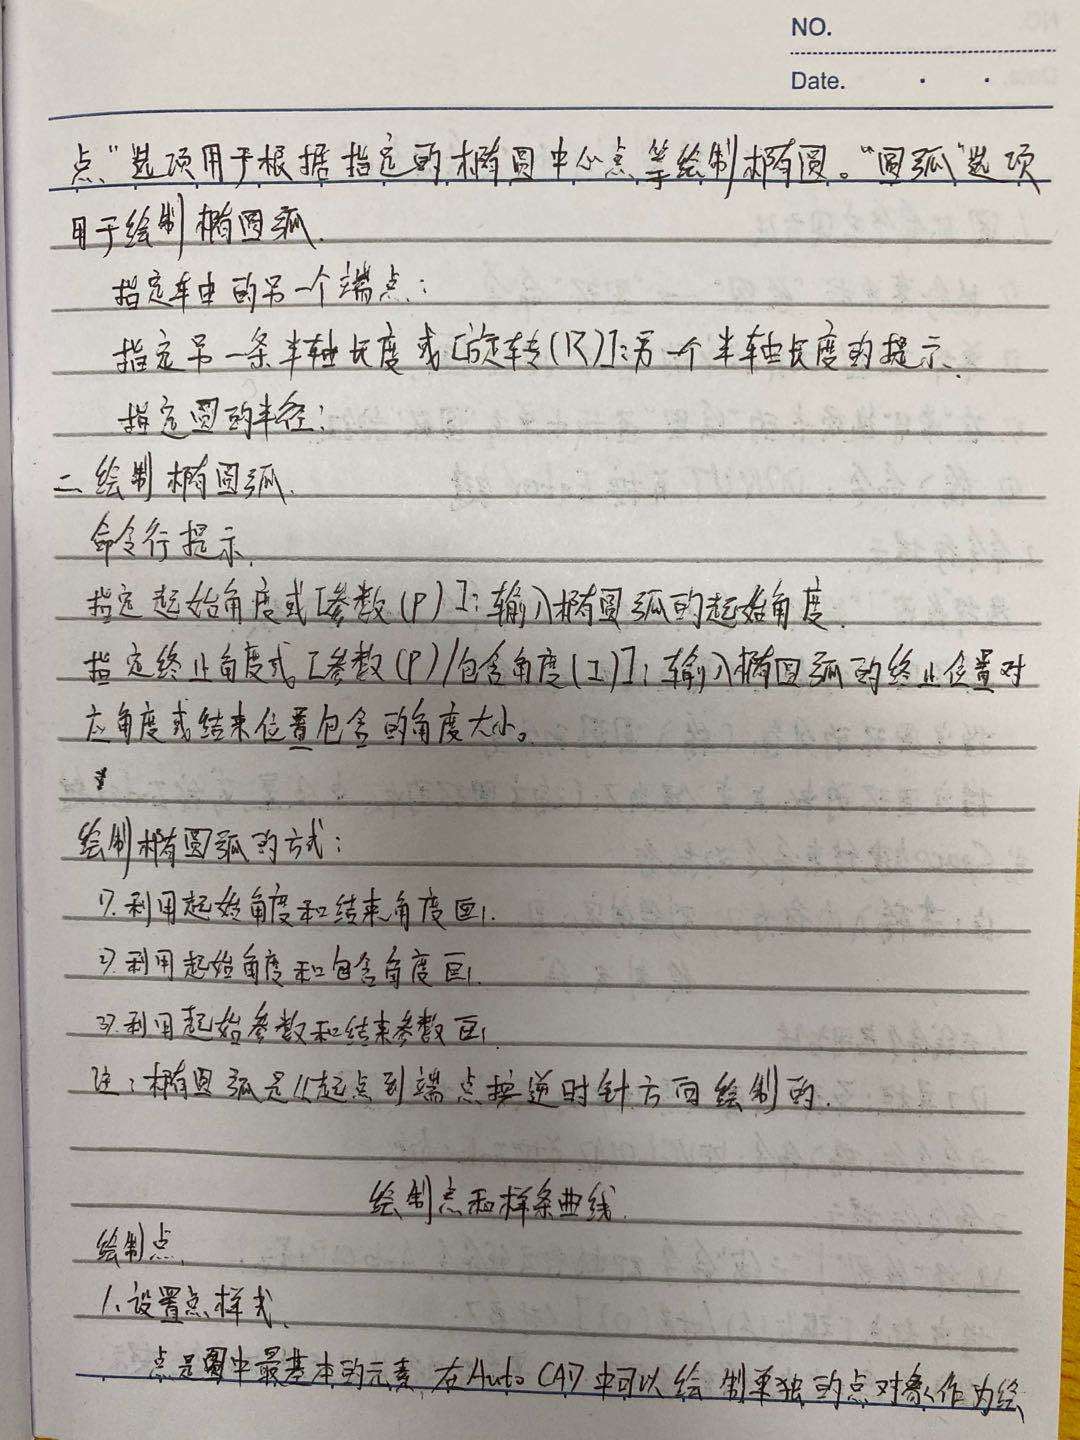 NO.
Date.
点"选项用于根据指定的椭圆中心点等绘制椭圆。"圆弧"选项
用于绘制椭圆弧.
指定轴的另一个端点:
指定另一条半轴长度或[旋转(R)]:另一个半轴长度的提示.
指定圆的半径:
二.绘制椭圆弧.
命令行提示.
指定起始角度或[参数(P)]:输入椭圆弧的起始角度.
指定终止角度或[参数(P)/包含角度(I)]:输入椭圆弧的终止位置对
应角度或结束位置包含的角度大小。
绘制椭圆弧的方式:
1).利用起始角度和结束角度画.
2).利用起始角度和包含角度画.
3).利用起始参数和结束参数画.
注:椭圆弧是从起点到端点按逆时针方向绘制的.
绘制点和样条曲线.
绘制点.
1、设置点样式.
点是图中最基本的元素,在AutoCAD中可以绘制单独的点对象作为绘